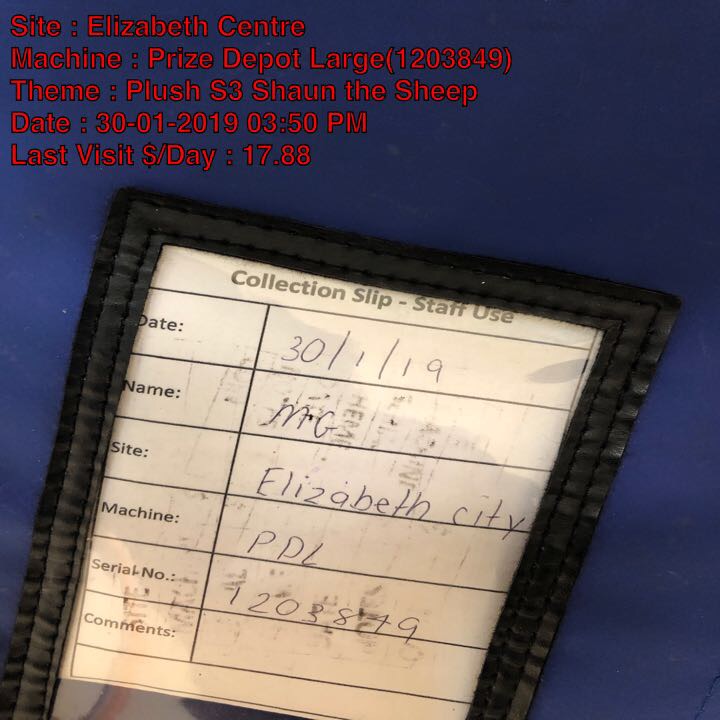 Site : Elizabeth Centre
Machine : Prize Depot Large(1203849)
Theme : Plush S3 Shaun the Sheep
Date : 30-01-2019 03:50 PM
Last Visit $/Day : 17.88
Collection Slip - Staff Use
Date: 30/1/19
Name: MG
Site: Elizabeth city
Machine: PDL
Serial No.: 1203849
Comments: